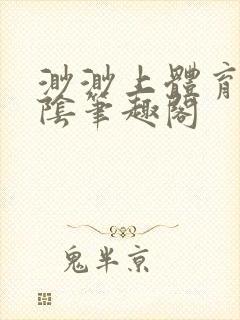 渺渺上體育
陰筆趣閣
鬼半京